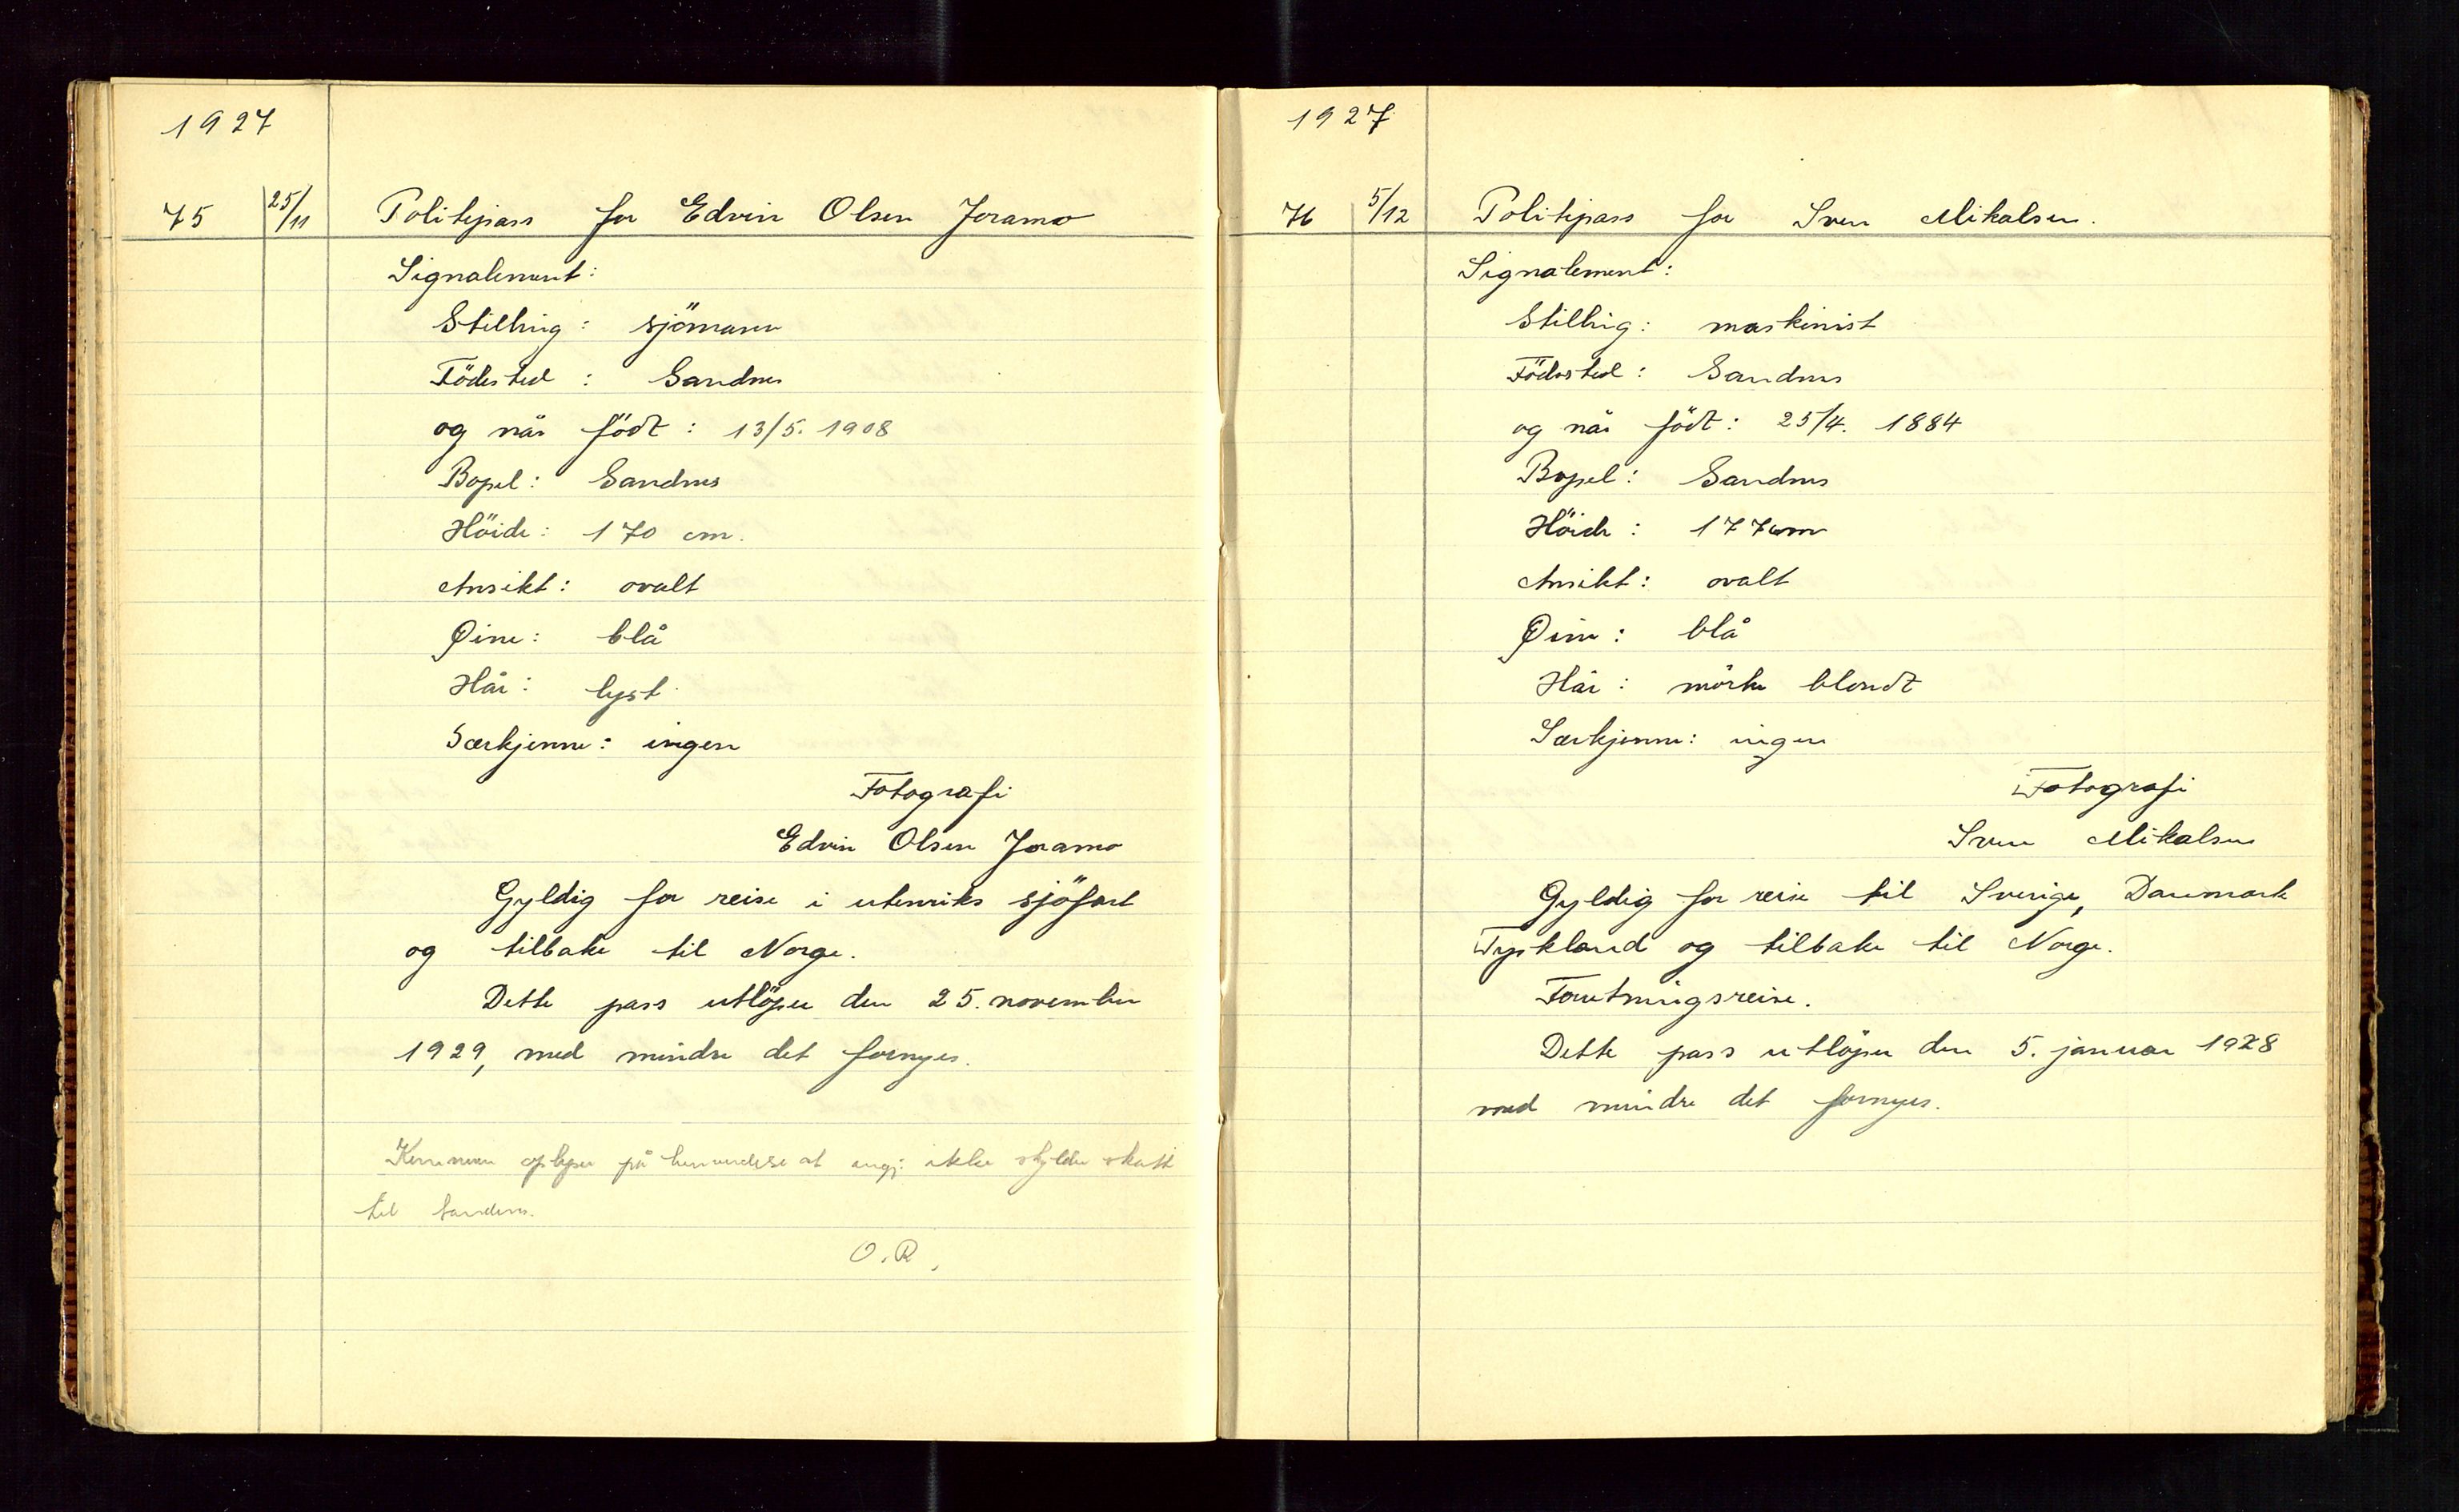 1927
75 25/11 Politipass for Edvin Olsen Joramo
Signalement:
Stilling: sjömann
Födested: Sandnes
og når födt: 13/5. 1908
Bopel: Sandnes
Höide: 170 cm.
Ansikt: ovalt
Øine: blå
Hår: lyst
Særkjenne: ingen
Fotografi
Edvin Olsen Joramo
Gyldig for reise i utenriks sjöfart
og tilbake til Norge.
Dette pass utlöper den 25. november
1929, med mindre det fornyes.
på henvendelse at ikke skylder skatt
til Sandnes.
O.R.
1927
76 5/12 Politipass for Sven Mikalsen.
Signalement:
Stilling: maskinist
Födested: Sandnes
og når födt: 25/4. 1884
Bopel: Sandnes
Höide: 177 cm
Ansikt: ovalt
Øine: blå
Hår: mörke blondt
Særkjenne: ingen
Fotografi
Sven Mikalsen
Gyldig for reise til Sverige, Danmark
Tyskland og tilbake til Norge.
Foretningsreise.
Dette pass utlöper den 5. januar 1928
med mindre det fornyes.